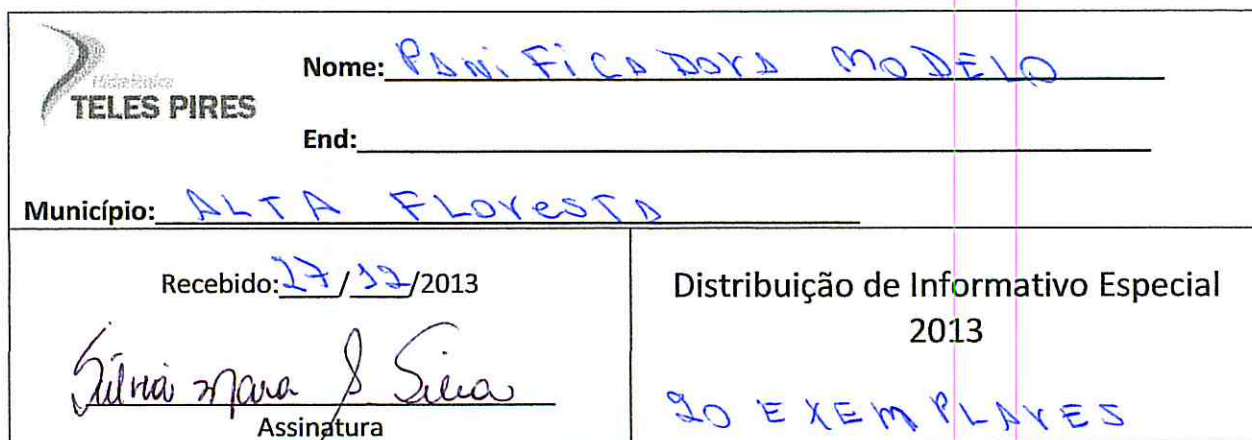 Hidrelétrica
TELES PIRES
Nome: PANiFiCADORA MODELO
End:
Município: ALTA FLOResTA
Recebido: 27/12/2013
Sílvia Mara S Silva
Assinatura
Distribuição de Informativo Especial
2013
20 EXEMPLARES